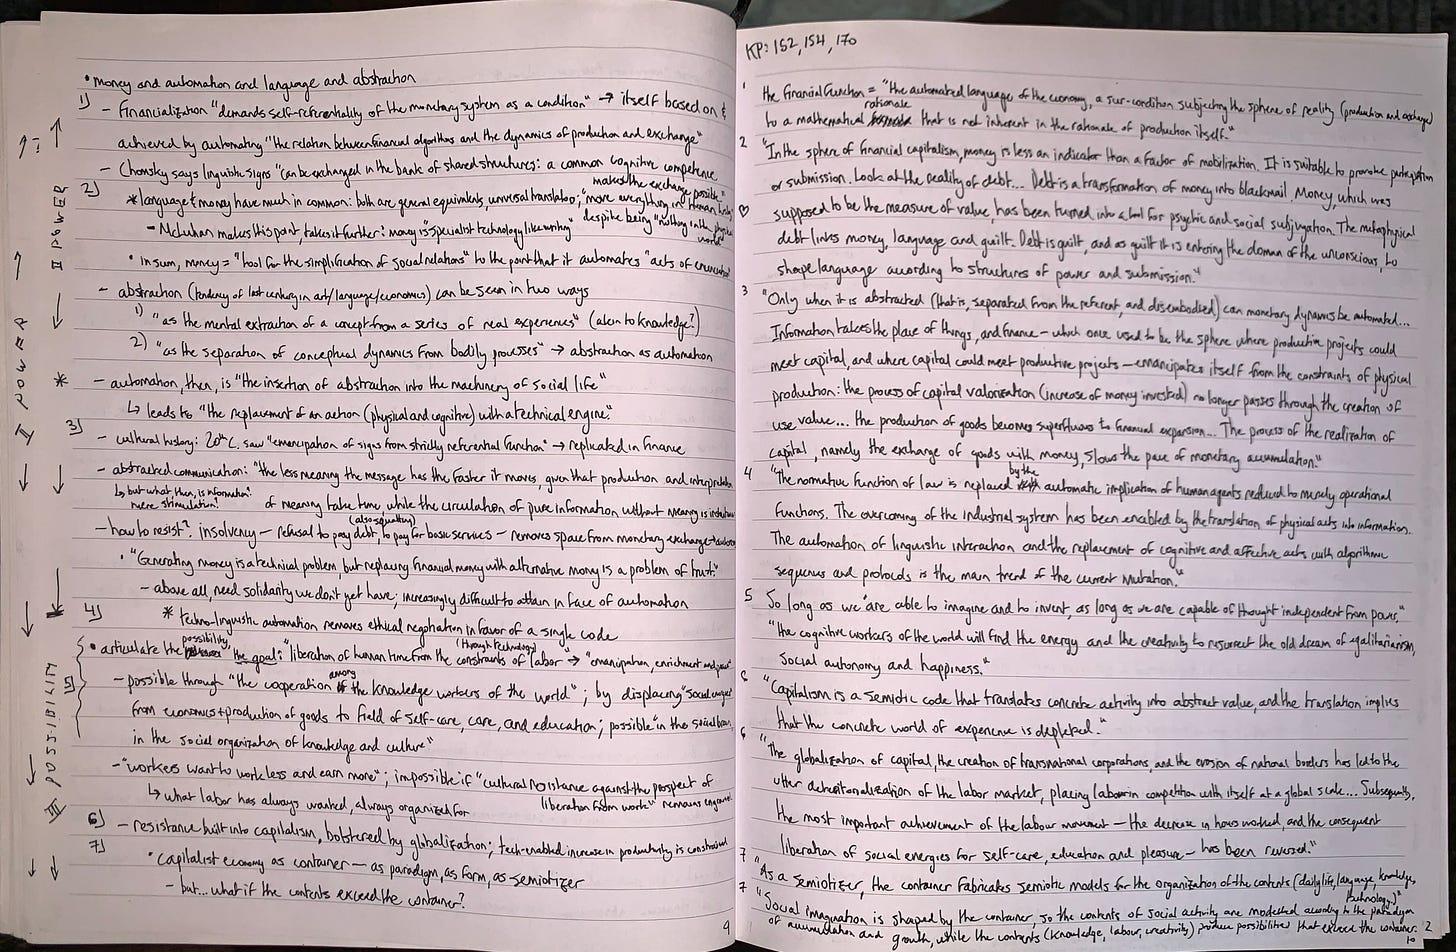 • money and automation and language and abstraction
1) – Financialization "demands self-referentiality of the monetary system as a condition" → itself based on &
achieved by automating "the relation between financial algorithms and the dynamics of production and exchange"
– Chomsky says linguistic signs "can be exchanged in the bank of shared structures: a common cognitive competence
makes the exchange possible"
2) * language & money have much in common: both are general equivalents, universal translators; "more everything in human
despite being "nothing in the physical world"
– McLuhan makes this point, takes it further: money is "specialist technology like writing"
• in sum, money = "tool for the simplification of social relations" to the point that it automates "acts of enunciation
– abstraction (tendency of last century in art/language/economics) can be seen in two ways
1) "as the mental extraction of a concept from a series of real experiences" (akin to knowledge?)
2) "as the separation of conceptual dynamics from bodily processes" → abstraction as automation
* – automation, then, is "the insertion of abstraction into the machinery of social life"
↳ leads to "the replacement of an action (physical and cognitive) with a technical engine."
3) – cultural history: 20th C. saw "emancipation of signs from strictly referential function" → replicated in finance
– abstracted communication: "the less meaning the message has the faster it moves, given that production and interpretation
↳ but what then, is information?
mere stimulation?
of meaning take time while the circulation of pure information without meaning is
(also squatting)
– how to resist? insolvency – refusal to pay debt, to pay for basic services – removes space from monetary exchange +
• "Generating money is a technical problem, but replacing financial money with alternative money is a problem of trust."
– above all need solidarity we don't yet have; increasingly difficult to attain in face of automation
4) * techno-linguistic automation removes ethical negotiation in favor of a single code
possibility
(through technology)
• articulate the the goal: "liberation of human time from the constraints of labor" → "emancipation, enrichment and
among
5) – possible through "the cooperation the knowledge workers of the world"; by displacing "social energies
from economics + production of goods to field of self-care, care, and education; possible "in the social brain,
in the social organization of knowledge and culture"
– "workers want to work less and earn more"; impossible if "cultural resistance against the prospect of
liberation from work" remains
↳ what labor has always wanted, always organized for
6) – resistance built into capitalism, bolstered by globalization; tech-enabled increase in productivity is constrained
7) • capitalist economy as container – as paradigm, as form, as semiotizer
– but... what if the contents exceed the container?
I POWER
II POWER
III POSSIBILITY
9
KP: 152, 154, 170
1 the financial function = "the automated language of the economy, a sur-condition subjecting the sphere of reality (production and exchange)
rationale
to a mathematical that is not inherent in the rationale of production itself."
2 "In the sphere of financial capitalism, money is less an indicator than a factor of mobilization. It is suitable to provoke participation
or submission. Look at the reality of debt... Debt is a transformation of money into blackmail. Money, which was
♡ supposed to be the measure of value, has been turned into a tool for psychic and social subjugation. The metaphysical
debt links money, language and guilt. Debt is guilt, and as guilt it is entering the domain of the unconscious, to
shape language according to structures of power and submission."
3 "Only when it is abstracted (that is, separated from the referent, and disembodied) can monetary dynamics be automated...
Information takes the place of things, and finance – which once used to be the sphere where productive projects could
meet capital, and where capital could meet productive projects – emancipates itself from the constraints of physical
production: the process of capital valorization (increase of money invested) no longer passes through the creation of
use value... the production of goods becomes superfluous to financial expansion... The process of the realization of
capital, namely the exchange of goods with money, slows the pace of monetary accumulation."
by the
4 "The normative function of law is replaced automatic implication of human agents reduced to merely operational
functions. The overcoming of the industrial system has been enabled by the translation of physical acts into information.
The automation of linguistic interaction and the replacement of cognitive and affective acts with algorithmic
sequences and protocols is the main trend of the current mutation."
5 So long as we "are able to imagine and to invent, as long as we are capable of thought independent from power,"
"the cognitive workers of the world will find the energy and the creativity to resurrect the old dream of egalitarianism,
social autonomy and happiness."
6 "Capitalism is a semiotic code that translates concrete activity into abstract value, and the translation implies
that the concrete world of experience is depleted."
6 "The globalization of capital, the creation of transnational corporations, and the erosion of national borders has led to the
utter deterritorialization of the labor market, placing labour in competition with itself at a global scale... Subsequently,
the most important achievement of the labour movement – the decrease in hours worked, and the consequent
liberation of social energies for self-care, education and pleasure – has been reversed."
7 "As a semiotizer, the container fabricates semiotic models for the organization of the contents (daily life, language, knowledge,
technology)"
7 "Social imagination is shaped by the container, so the contents of social activity are modelled according to the paradigm
of accumulation and growth, while the contents (knowledge, labour, creativity) produce possibilities that exceed the container.
2